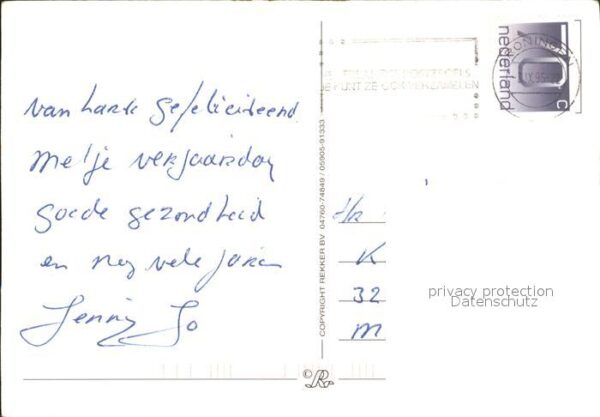 van harte gefeliciteerd
met je verjaardag
goede gezondheid
en nog vele jaren
Jenny Jo
COPYRIGHT REKKER BV 04760-74849 / 05905-91333
©R
GRONINGEN
nederland
c
JE KUNT ZE OOK VERZAMELEN
K
32
M
privacy protection
Datenschutz